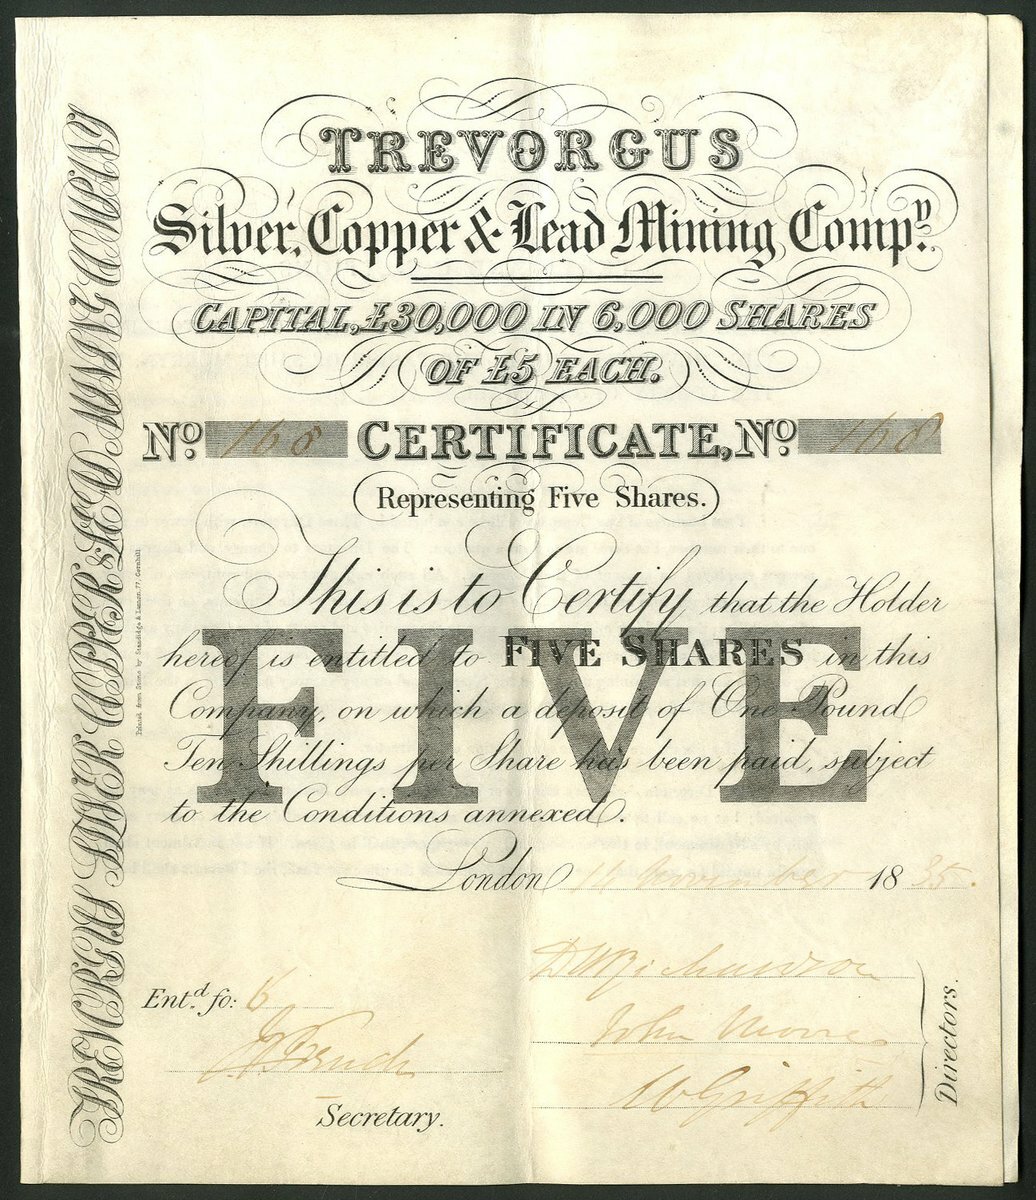 TREVORGUS
Silver, Copper & Lead Mining Compy.
CAPITAL, £30,000 IN 6,000 SHARES
OF £5 EACH.
No. 168 CERTIFICATE, No. 168
Representing Five Shares.
This is to Certify that the Holder
hereof is entitled to FIVE SHARES in this
Company, on which a deposit of One Pound
Ten Shillings per Share has been paid, subject
to the Conditions annexed.
FIVE
London 11 November 1835.
Entd. fo: 6
Richardson
John Moore
W Griffith
Directors.
French
Secretary.
TREVORGUS SILVER COPPER & LEAD MINING COMPANY
Printed from Stone by Standidge & Lemon, 77, Cornhill